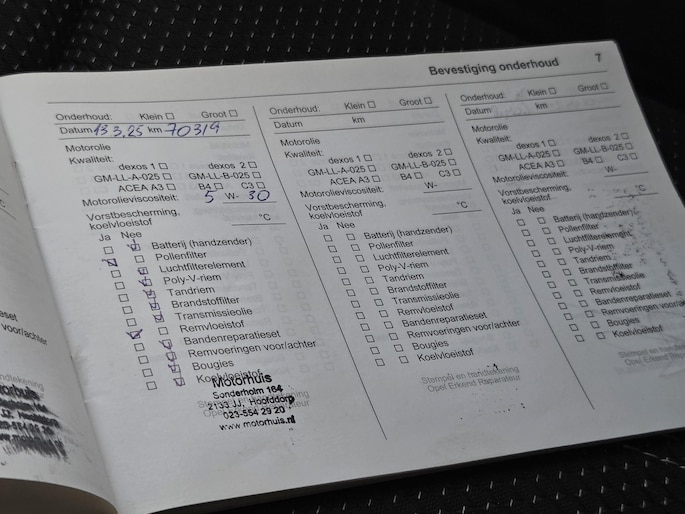 Bevestiging onderhoud 7
Onderhoud: Klein Groot
Datum 13 3.25 km 70319
Motorolie
Kwaliteit:
dexos 1 dexos 2
GM-LL-A-025 GM-LL-B-025
ACEA A3 B4 C3
Motorolieviscositeit: 5 W- 30
Vorstbescherming,
koelvloeistof °C
Ja Nee
Batterij (handzender)
Pollenfilter
Luchtfilterelement
Poly-V-riem
Tandriem
Brandstoffilter
Transmissieolie
Remvloeistof
Bandenreparatieset
Remvoeringen voor/achter
Bougies
Koelvloeistof
Motorhuis
Sonderholm 164
2133 JJ, Hoofddorp
023-554 29 20
www.motorhuis.nl
Onderhoud: Klein Groot
Datum km
Motorolie
Kwaliteit:
dexos 1 dexos 2
GM-LL-A-025 GM-LL-B-025
ACEA A3 B4 C3
Motorolieviscositeit: W-
Vorstbescherming,
koelvloeistof °C
Ja Nee
Batterij (handzender)
Pollenfilter
Luchtfilterelement
Poly-V-riem
Tandriem
Brandstoffilter
Transmissieolie
Remvloeistof
Bandenreparatieset
Remvoeringen voor/achter
Bougies
Koelvloeistof
Stempel en handtekening
Opel Erkend Reparateur
Onderhoud: Klein Groot
Datum km
Motorolie
Kwaliteit:
dexos 1 dexos 2
GM-LL-A-025 GM-LL-B-025
ACEA A3 B4 C3
Motorolieviscositeit: W-
Vorstbescherming,
koelvloeistof °C
Ja Nee
Batterij (handzender)
Pollenfilter
Luchtfilterelement
Poly-V-riem
Tandriem
Brandstoffilter
Transmissieolie
Remvloeistof
Bandenreparatieset
Remvoeringen voor/achter
Bougies
Koelvloeistof
Stempel en handtekening
Opel Erkend Reparateur